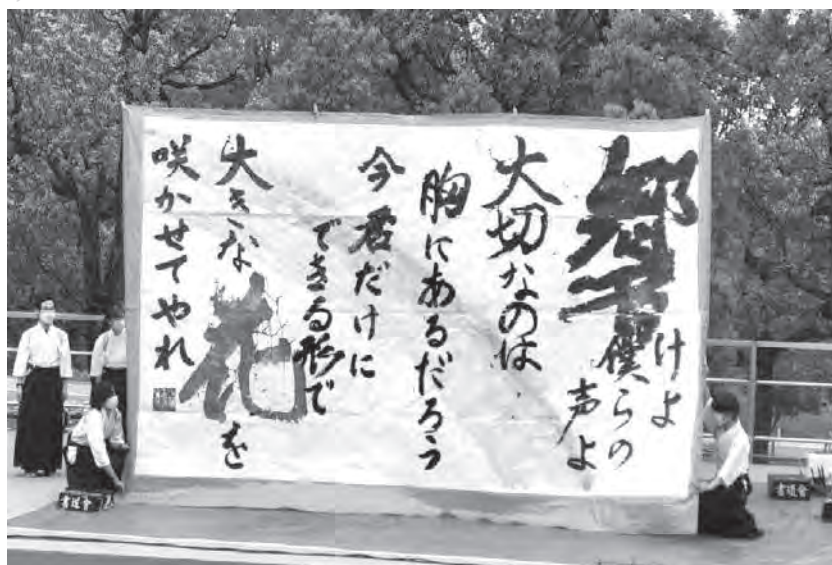 響けよ
僕らの
声よ
大切なのは
胸にあるだろう
今君だけに
できる形で
大きな花を
咲かせてやれ
書道會
書道會